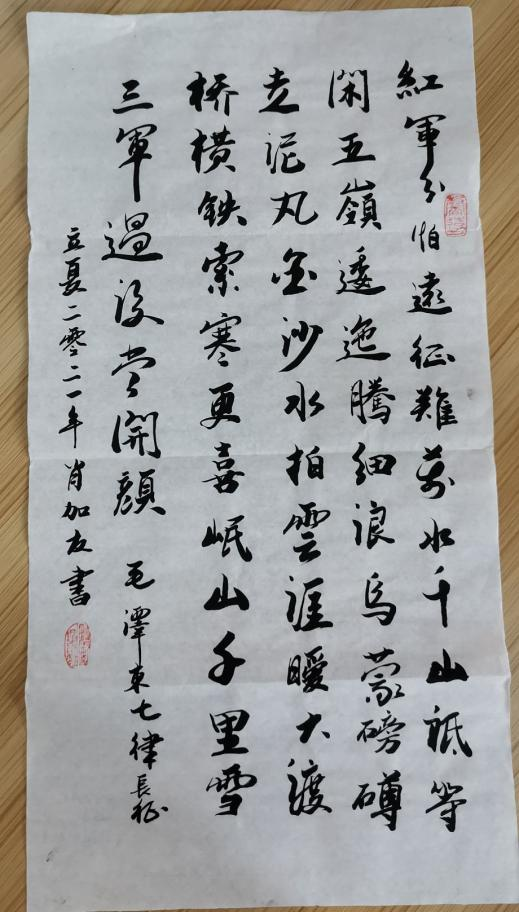 紅軍不怕遠征難萬水千山祗等
閑五嶺逶迤騰細浪烏蒙磅礴
走泥丸金沙水拍雲涯暖大渡
桥橫铁索寒更喜岷山千里雪
三軍過後尽開顏 毛澤東七律長征
立夏二零二一年肖加友書